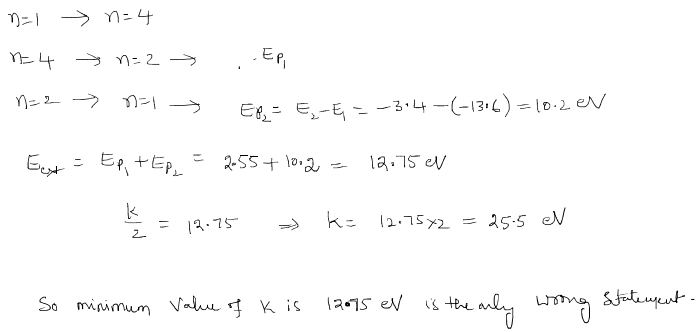 n=1 → n=4
n=4 → n=2 → . - Ep₁
n=2 → n=1 → Ep₂ = E₂-E₁ = -3.4 - (-13.6) = 10.2 eV
E_ext = Ep₁ + Ep₂ = 2.55 + 10.2 = 12.75 eV
k/2 = 12.75 ⇒ k = 12.75×2 = 25.5 eV
So minimum value of k is 12.75 eV is the only wrong statement.